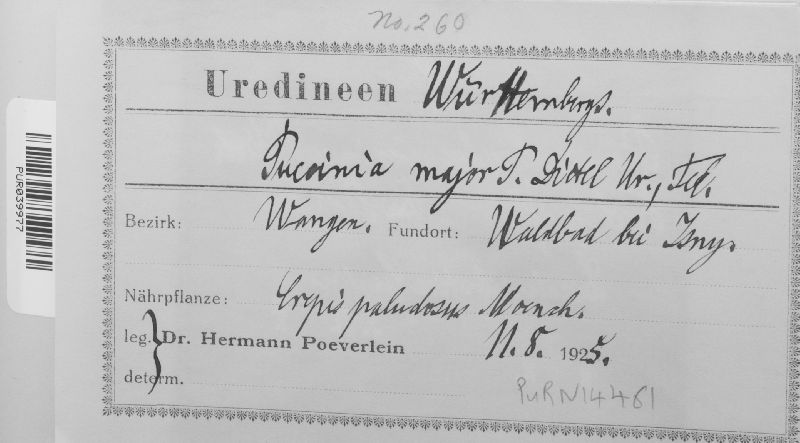 No. 260
Uredineen Württembergs.
Puccinia major P. Dietel Ur., Tel.
Bezirk: Wangen. Fundort: Waldbad bei Isny.
Nährpflanze: Crepis paludosus Moench.
leg. Dr. Hermann Poeverlein 11. 8. 1925.
determ.
PURN14461
PUR039977